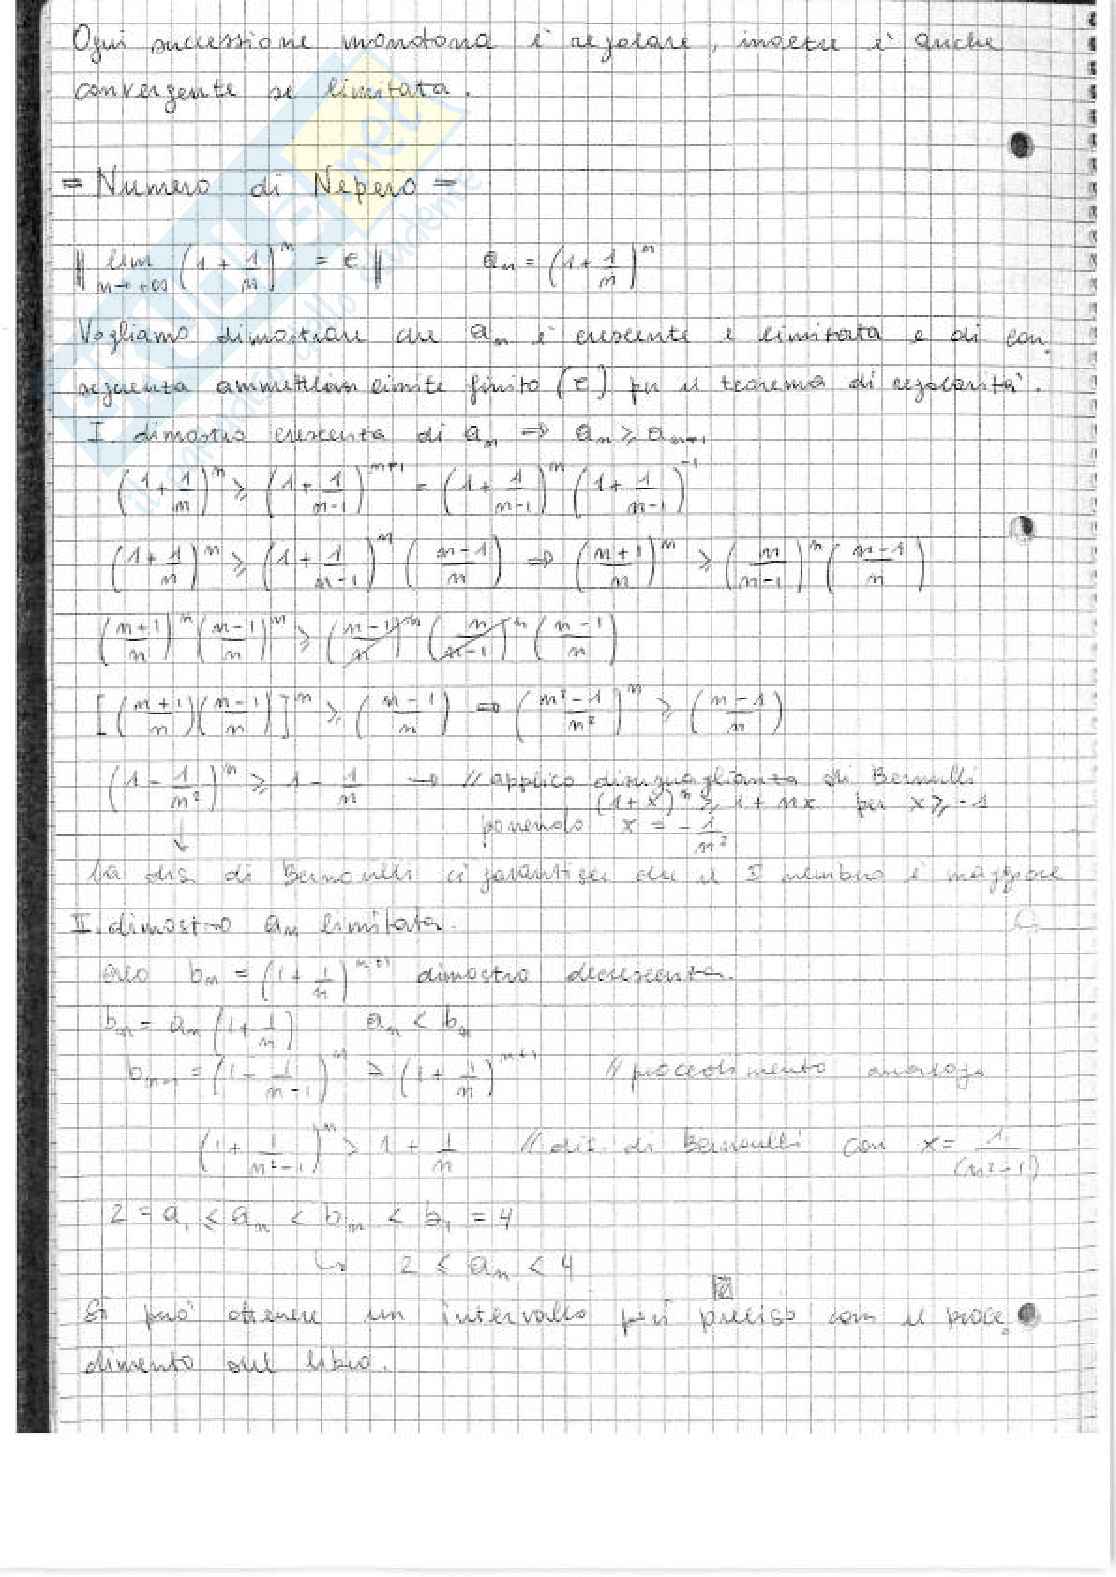 Ogni successione monotona è regolare, inoltre è anche
convergente se limitata.
= Numero di Nepero =
‖ lim n→+∞ (1 + 1/n)^n = e ‖ an = (1 + 1/n)^n
Vogliamo dimostrare che an è crescente e limitata e di con-
seguenza limite finito (e) per il teorema di regolarità.
I. dimostro crescenta di an ⇒ an ≥ an+1
(1 + 1/n)^n ≥ (1 + 1/(n-1))^(n+1) = (1 + 1/(n-1))^n (1 + 1/(n-1))^-1
(1 + 1/n)^n ≥ (1 + 1/(n-1))^n ((n-1)/n) ⇒ ((n+1)/n)^n ≥ (n/(n-1))^n ((n-1)/n)
((n+1)/n)^n ((n-1)/n)^n ≥ ((n-1)/n)^n (n/(n-1))^n ((n-1)/n)
[((n+1)/n)((n-1)/n)]^n ≥ ((n-1)/n) ⇒ ((n²-1)/n²)^n ≥ ((n-1)/n)
(1 - 1/n²)^n ≥ 1 - 1/n → // applico disuguaglianza di Bernulli
(1+x)^n ≥ 1 + nx per x ≥ -1
ponendo x = - 1/n²
↓
la dis. di Bernoulli ci garantisce che il I membro è maggiore
II. dimostro an limitata.
bn = (1 + 1/n)^(n+1) dimostro decrescenta.
bn = an (1 + 1/n) an < bn
bn-1 = (1 - 1/(n-1))^n > (1 + 1/n)^(n+1) // procedimento analogo
(1 + 1/(n²-1))^n > 1 + 1/n // dis. di Bernoulli con x = 1/(n²-1)
2 = a1 ≤ an < bn < b1 = 4
↳ 2 ≤ an < 4
Si può ottenere un intervallo più preciso con il proce-
dimento sul libro.